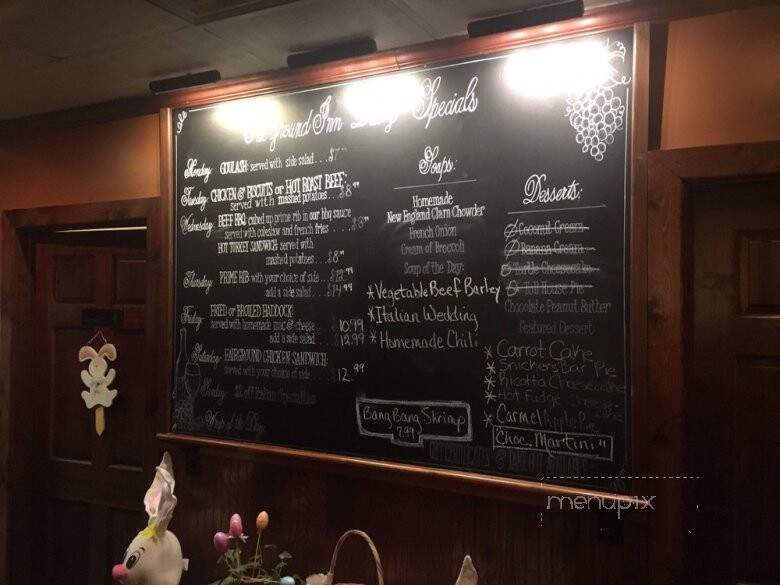 Fairground Inn Daily Specials
Monday: GOULASH: served with side salad...$7
Tuesday: CHICKEN & BISCUITS or HOT ROAST BEEF:
served with mashed potatoes...$8 99
Wednesday: BEEF BBQ cubed up prime rib in our bbq sauce
served with coleslaw and french fries...$8 99
HOT TURKEY SANDWICH: served with
mashed potatoes...$8 99
Thursday: PRIME RIB: with your choice of side...$12.99
add a side salad...$14.99
Friday: FRIED or BROILED HADDOCK:
served with homemade mac & cheese 10.99
add a side salad 12.99
Saturday: FAIRGROUND CHICKEN SANDWICH:
served with your choice of side 12.99
Soups:
Homemade
New England Clam Chowder
French Onion
Cream of Broccoli
Soup of the Day:
*Vegetable Beef Barley
*Italian Wedding
*Homemade Chili
Bang Bang Shrimp
7.99
Desserts:
Coconut Cream
Banana Cream
Turtle Cheesecake
Toll House Pie
Chocolate Peanut Butter
Featured Dessert
* Carrot Cake
* Snickers Bar Pie
* Ricotta Cheesecake
* Hot Fudge
* Carmel Apple Pie
"Choc. Martini"
menupix